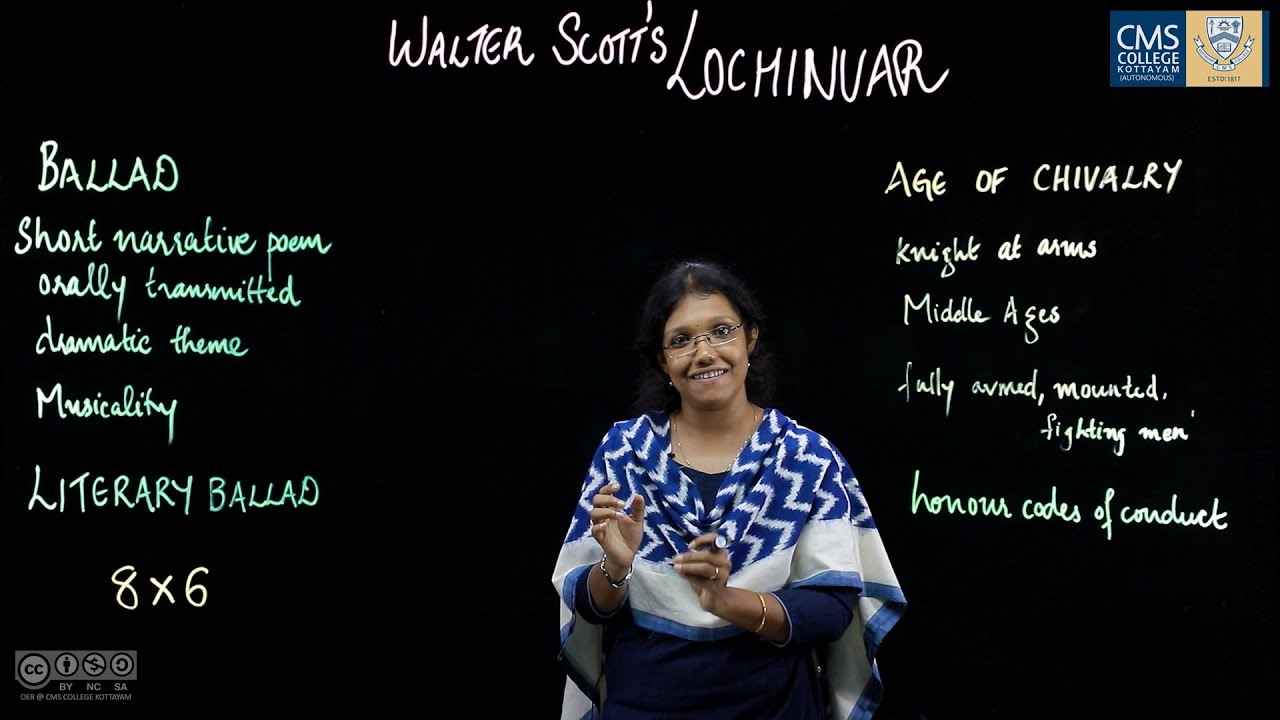 WALTER SCOTT'S LOCHINVAR
CMS
COLLEGE
KOTTAYAM
(AUTONOMOUS)
ESTD:1817
BALLAD
Short narrative poem
orally transmitted
dramatic theme
Musicality
LITERARY BALLAD
8x6
AGE OF CHIVALRY
Knight at arms
Middle Ages
fully armed, mounted,
fighting men'
honour codes of conduct
cc
BY NC SA
OER @ CMS COLLEGE KOTTAYAM